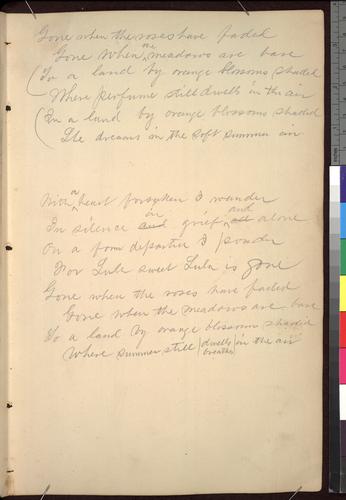 Gone when the roses have faded
Gone when the meadows are bare
(To a land by orange blossoms shaded
Where perfume still dwells in the air
(In a land by orange blossoms shaded
She dreams in the soft summer air
With a heart forsaken I wander
In silence and in grief all and alone
On a form departed I ponder
For Lula sweet Lula is gone
Gone when the roses have faded
Gone when the meadows are bare
To a land by orange blossoms shaded
Where summer still (dwells breathes) in the air